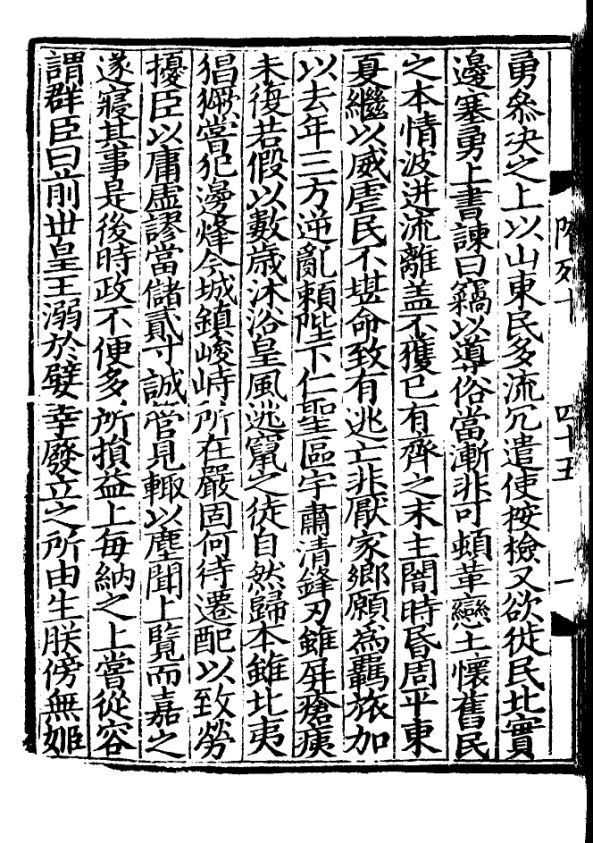 隋列十
四十五
勇叅決之上以山東民多流冗遣使按檢又欲徙民北實
邊塞勇上書諫曰竊以導俗當漸非可頓革戀土懷舊民
之本情波迸流離盖不獲已有齊之末主闇時昏周平東
夏繼以威虐民不堪命致有逃亡非厭家鄉願為羈旅加
以去年三方逆亂賴陛下仁聖區宇肅清鋒刃雖屏瘡痍
未復若假以數歲沐浴皇風逃竄之徒自然歸本雖北夷
猖獗嘗犯邊烽今城鎮峻峙所在嚴固何待遷配以致勞
擾臣以庸虛謬當儲貳寸誠管見輙以塵聞上覽而嘉之
遂寢其事是後時政不便多所損益上每納之上嘗從容
謂群臣曰前世皇王溺於嬖幸廢立之所由生朕傍無姬